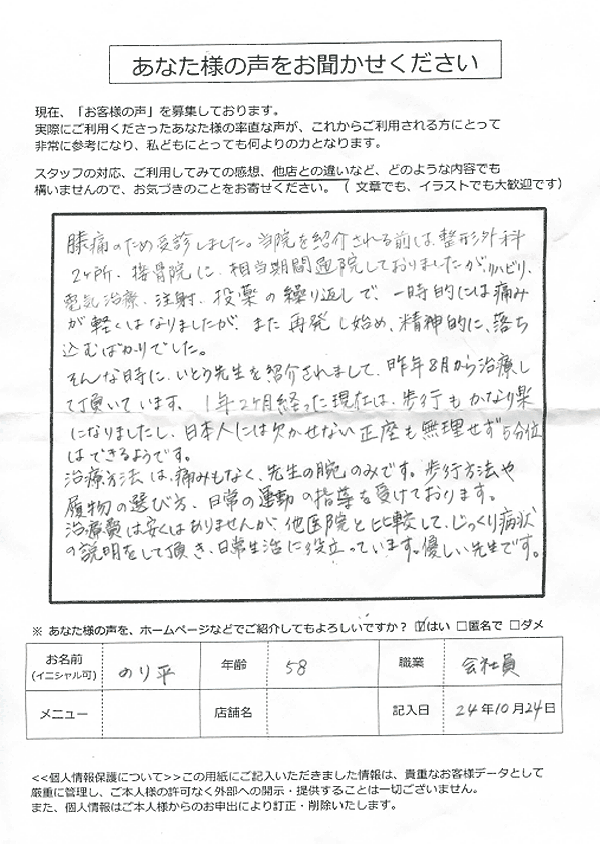 あなた様の声をお聞かせください
現在、「お客様の声」を募集しております。
実際にご利用くださったあなた様の率直な声が、これからご利用される方にとって
非常に参考になり、私どもにとっても何よりの力となります。
スタッフの対応、ご利用してみての感想、他店との違いなど、どのような内容でも
構いませんので、お気づきのことをお寄せください。（ 文章でも、イラストでも大歓迎です）
膝痛のため受診しました。当院を紹介される前は、整形外科
2ヶ所、接骨院に、相当期間通院しておりましたが、リハビリ、
電気治療、注射、投薬の繰り返しで、一時的には痛み
が軽くはなりましたが、また再発し始め、精神的に、落ち
込むばかりでした。
そんな時に、いとう先生を紹介されまして、昨年8月から治療し
て頂いています。1年2ヶ月経った現在は、歩行もかなり楽
になりましたし、日本人には欠かせない正座も無理せず5分位
はできるようです。
治療方法は、痛みもなく、先生の腕のみです。歩行方法や
履物の選び方、日常の運動の指導を受けております。
治療費は安くはありませんが、他医院と比較して、じっくり病状
の説明をして頂き、日常生活に役立っています。優しい先生です。
※ あなた様の声を、ホームページなどでご紹介してもよろしいですか？ ☑はい □匿名で □ダメ
お名前 (イニシャル可) のり平 年齢 58 職業 会社員
メニュー 店舗名 記入日 24年10月24日
<<個人情報保護について>>この用紙にご記入いただきました情報は、貴重なお客様データとして
厳重に管理し、ご本人様の許可なく外部への開示・提供することは一切ございません。
また、個人情報はご本人様からのお申出により訂正・削除いたします。